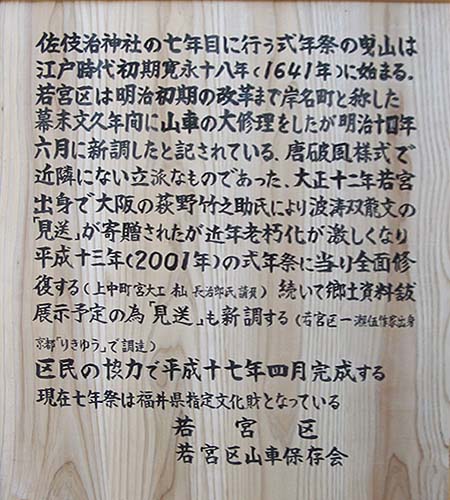 佐伎治神社の七年目に行う式年祭の曳山は
江戸時代初期寛永十八年(1641年)に始まる.
若宮区は明治初期の改革まで岸名町と称した
幕末文久年間に山車の大修理をしたが明治十四年
六月に新調したと記されている、唐破風様式で
近隣にない立派なものであった、大正十二年若宮
出身で大阪の萩野竹之助氏により波涛双龍文の
「見送」が寄贈されたが近年老朽化が激しくなり
平成十三年(2001年)の式年祭に当り全面修
復する(上中町宮大工 杣 長治郎氏請負) 続いて郷土資料舘
展示予定の為「見送」も新調する(若宮区一瀬伍作家出身
京都「りきゆう」で調達)
区民の協力で平成十七年四月完成する
現在七年祭は福井県指定文化財となっている
若宮区
若宮区山車保存会